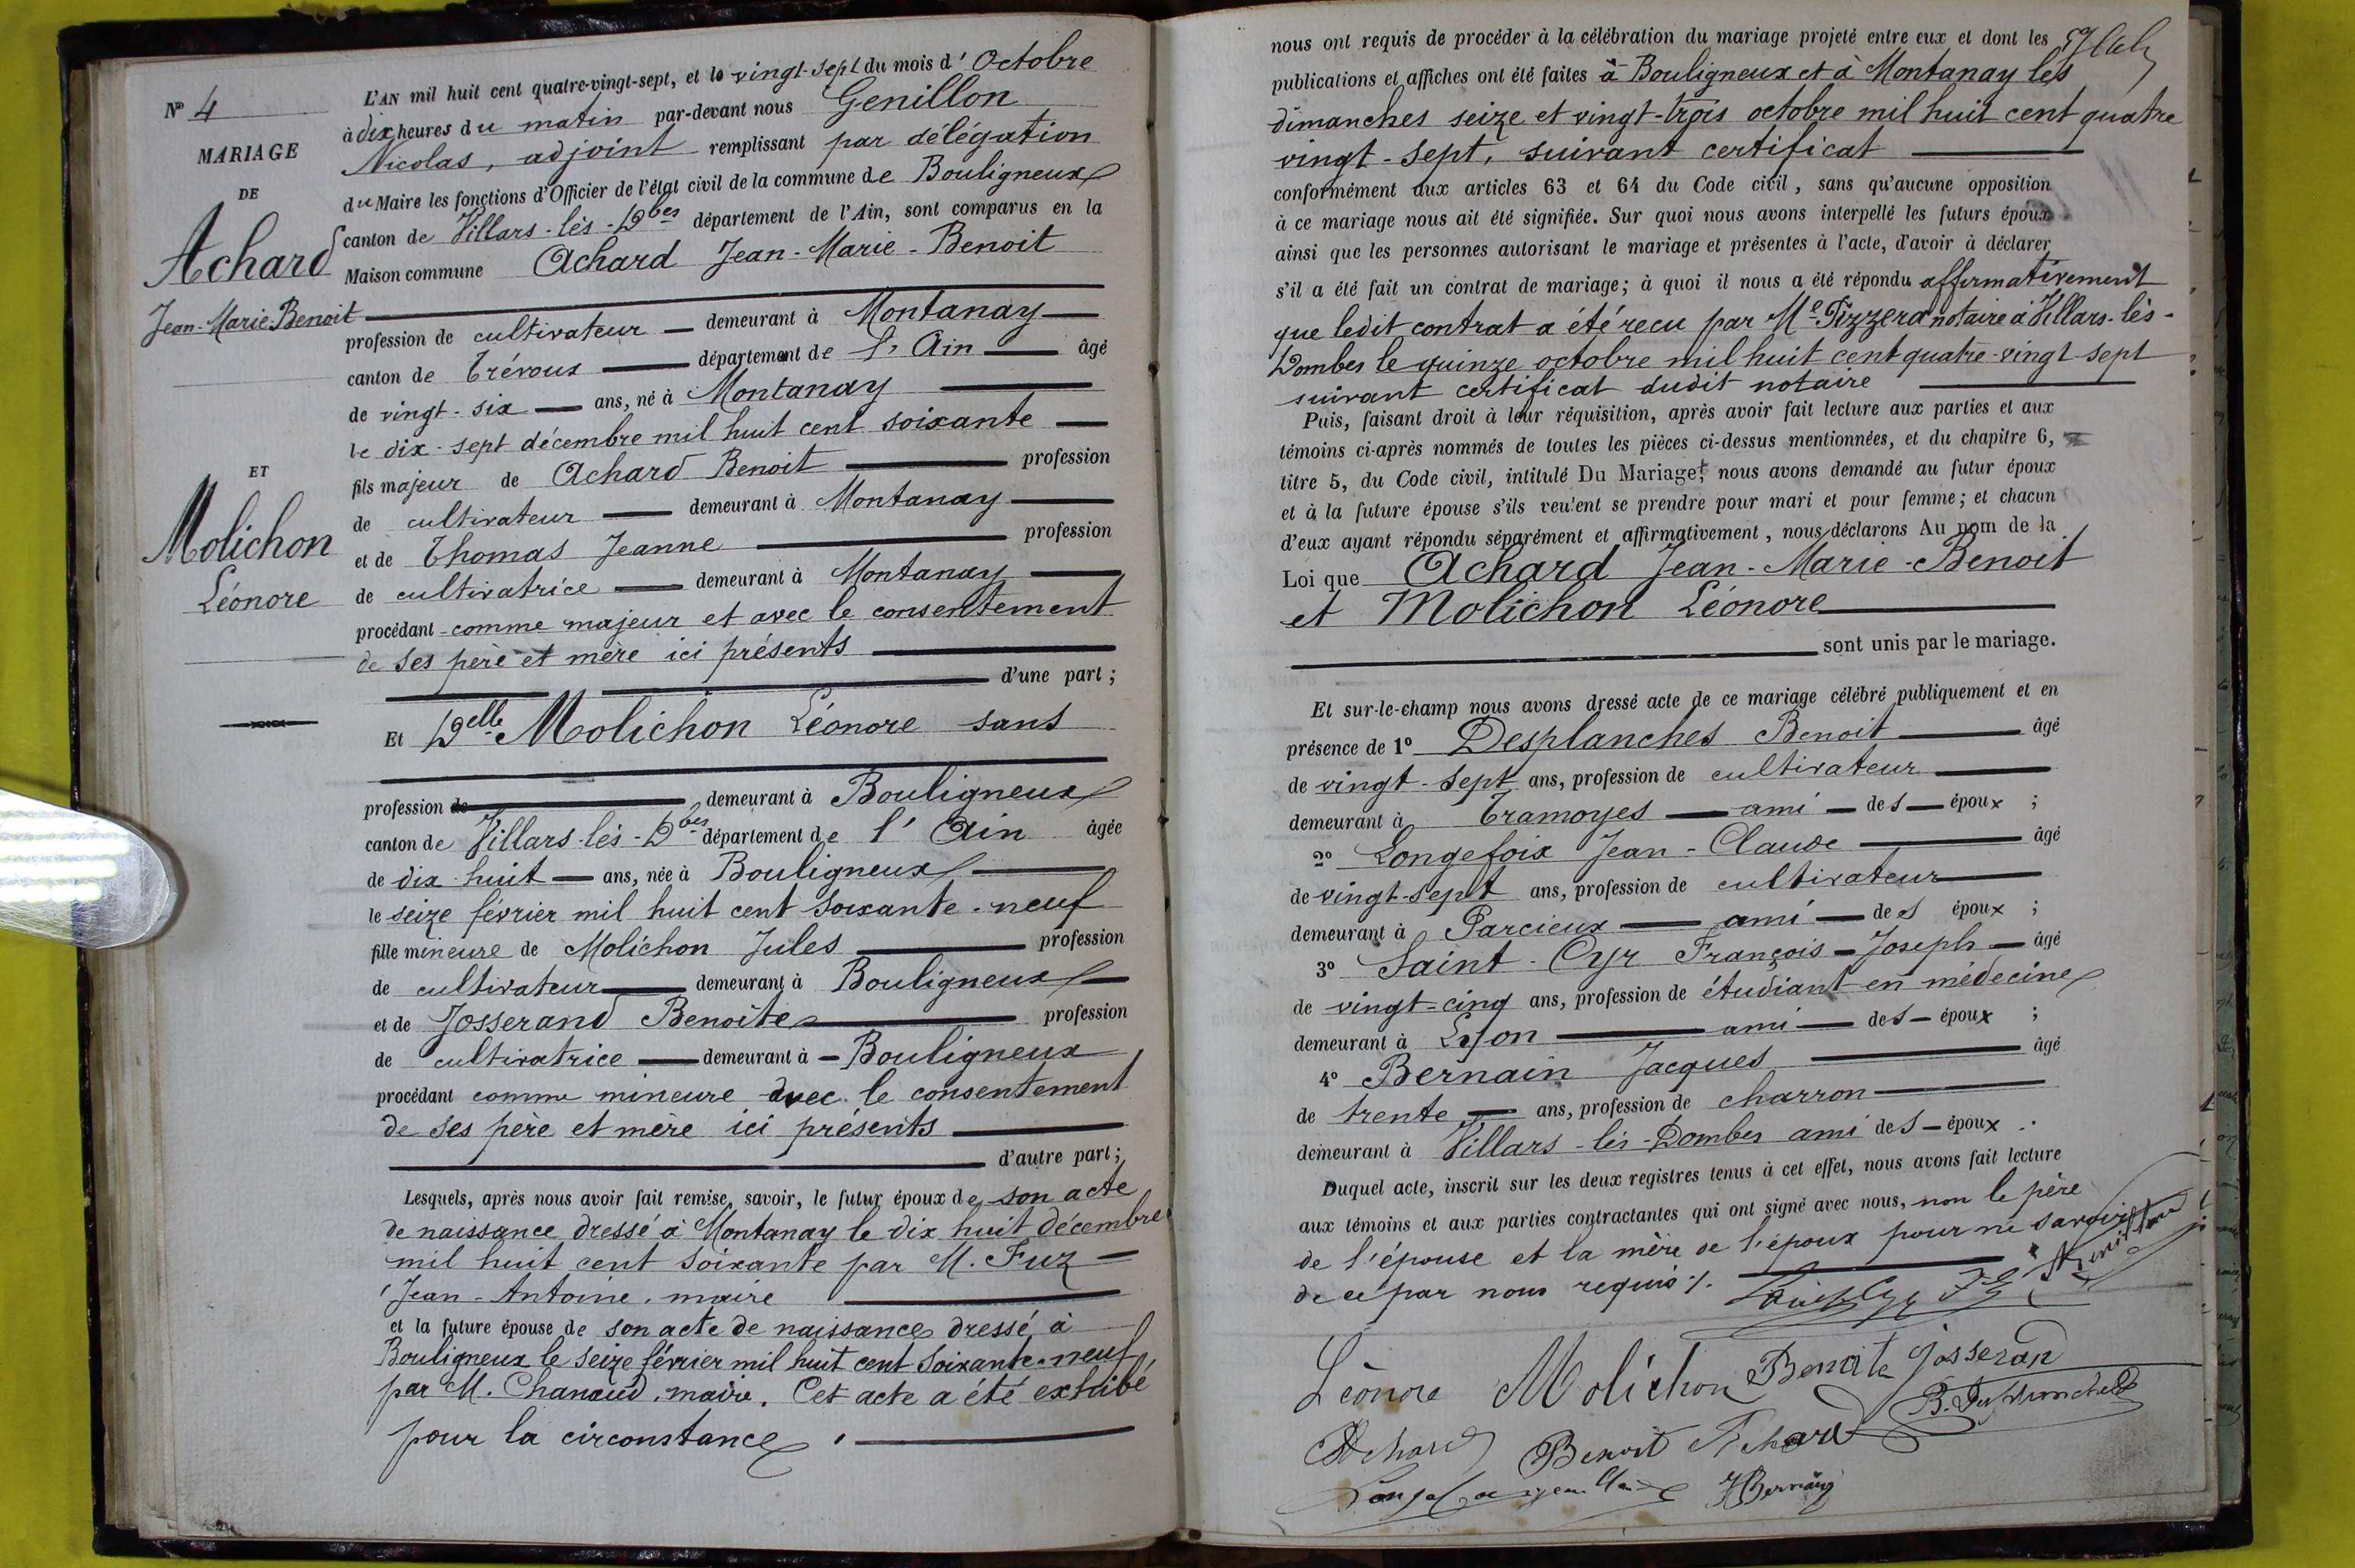 N° 4
MARIAGE
DE
Achard
Jean-Marie-Benoit
ET
Molichon
Léonore
L'AN mil huit cent quatre-vingt-sept, et le vingt-sept du mois d'Octobre
à dix heures du matin par-devant nous Genillon
Nicolas, adjoint remplissant par délégation
du Maire les fonctions d'Officier de l'état civil de la commune de Bouligneux
canton de Villars-lès-Dbes département de l'Ain, sont comparus en la
Maison commune Achard Jean-Marie-Benoit
profession de cultivateur demeurant à Montanay
canton de Trévoux département de l'Ain âgé
de vingt-six ans, né à Montanay
le dix-sept décembre mil huit cent soixante
fils majeur de Achard Benoit profession
de cultivateur demeurant à Montanay
et de Thomas Jeanne profession
de cultivatrice demeurant à Montanay
procédant comme majeur et avec le consentement
de ses père et mère ici présents
d'une part ;
Et Delle Molichon Léonore sans
profession de demeurant à Bouligneux
canton de Villars-lès-Dbes département de l'Ain âgée
de dix-huit ans, née à Bouligneux
le seize février mil huit cent soixante-neuf
fille mineure de Molichon Jules profession
de cultivateur demeurant à Bouligneux
et de Josserand Benoîte profession
de cultivatrice demeurant à Bouligneux
procédant comme mineure avec le consentement
de ses père et mère ici présents
d'autre part ;
Lesquels, après nous avoir fait remise, savoir, le futur époux de son acte
de naissance dressé à Montanay le dix huit décembre
mil huit cent soixante par M. Fuz
Jean-Antoine, maire
et la future épouse de son acte de naissance dressé à
Bouligneux le seize février mil huit cent soixante-neuf
par M. Chanaud, maire. Cet acte a été exhibé
pour la circonstance.
nous ont requis de procéder à la célébration du mariage projeté entre eux et dont les
publications et affiches ont été faites à Bouligneux et à Montanay les
dimanches seize et vingt-trois octobre mil huit cent quatre
vingt-sept, suivant certificat
conformément aux articles 63 et 64 du Code civil, sans qu'aucune opposition
à ce mariage nous ait été signifiée. Sur quoi nous avons interpellé les futurs époux
ainsi que les personnes autorisant le mariage et présentes à l'acte, d'avoir à déclarer
s'il a été fait un contrat de mariage; à quoi il nous a été répondu affirmativement
que ledit contrat a été recu par Me Pizzera notaire à Villars-lès-
Dombes le quinze octobre mil huit cent quatre-vingt-sept
suivant certificat dudit notaire
Puis, faisant droit à leur réquisition, après avoir fait lecture aux parties et aux
témoins ci-après nommés de toutes les pièces ci-dessus mentionnées, et du chapitre 6,
titre 5, du Code civil, intitulé Du Mariage, nous avons demandé au futur époux
et à la future épouse s'ils veulent se prendre pour mari et pour femme; et chacun
d'eux ayant répondu séparément et affirmativement, nous déclarons Au nom de la
Loi que Achard Jean-Marie-Benoit
et Molichon Léonore
sont unis par le mariage.
Et sur-le-champ nous avons dressé acte de ce mariage célébré publiquement et en
présence de 1° Desplanches Benoit âgé
de vingt-sept ans, profession de cultivateur
demeurant à Tramoyes ami des époux ;
2° Longefoix Jean-Claude âgé
de vingt-sept ans, profession de cultivateur
demeurant à Parcieux ami des époux ;
3° Saint-Cyr François-Joseph âgé
de vingt-cinq ans, profession de étudiant en médecine
demeurant à Lyon ami des époux ;
4° Bernain Jacques âgé
de trente ans, profession de charron
demeurant à Villars-lès-Dombes ami des époux.
Duquel acte, inscrit sur les deux registres tenus à cet effet, nous avons fait lecture
aux témoins et aux parties contractantes qui ont signé avec nous, non le père
de l'épouse et la mère de l'époux pour ne savoir
de ce par nous requis ./.
Léonore Molichon Benoite Josseran
Achard Benoit Achard
JBernain